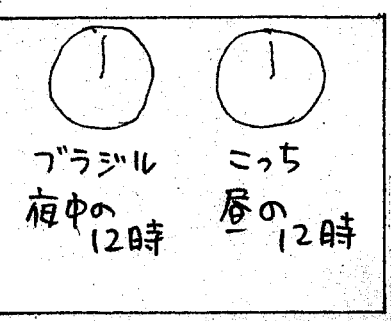 ブラジル
夜中の
12時
こっち
昼の
12時